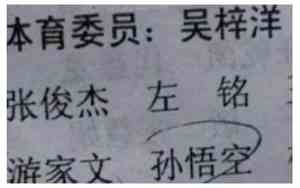 体育委员：吴梓洋
张俊杰 左 铭
游家文 孙悟空